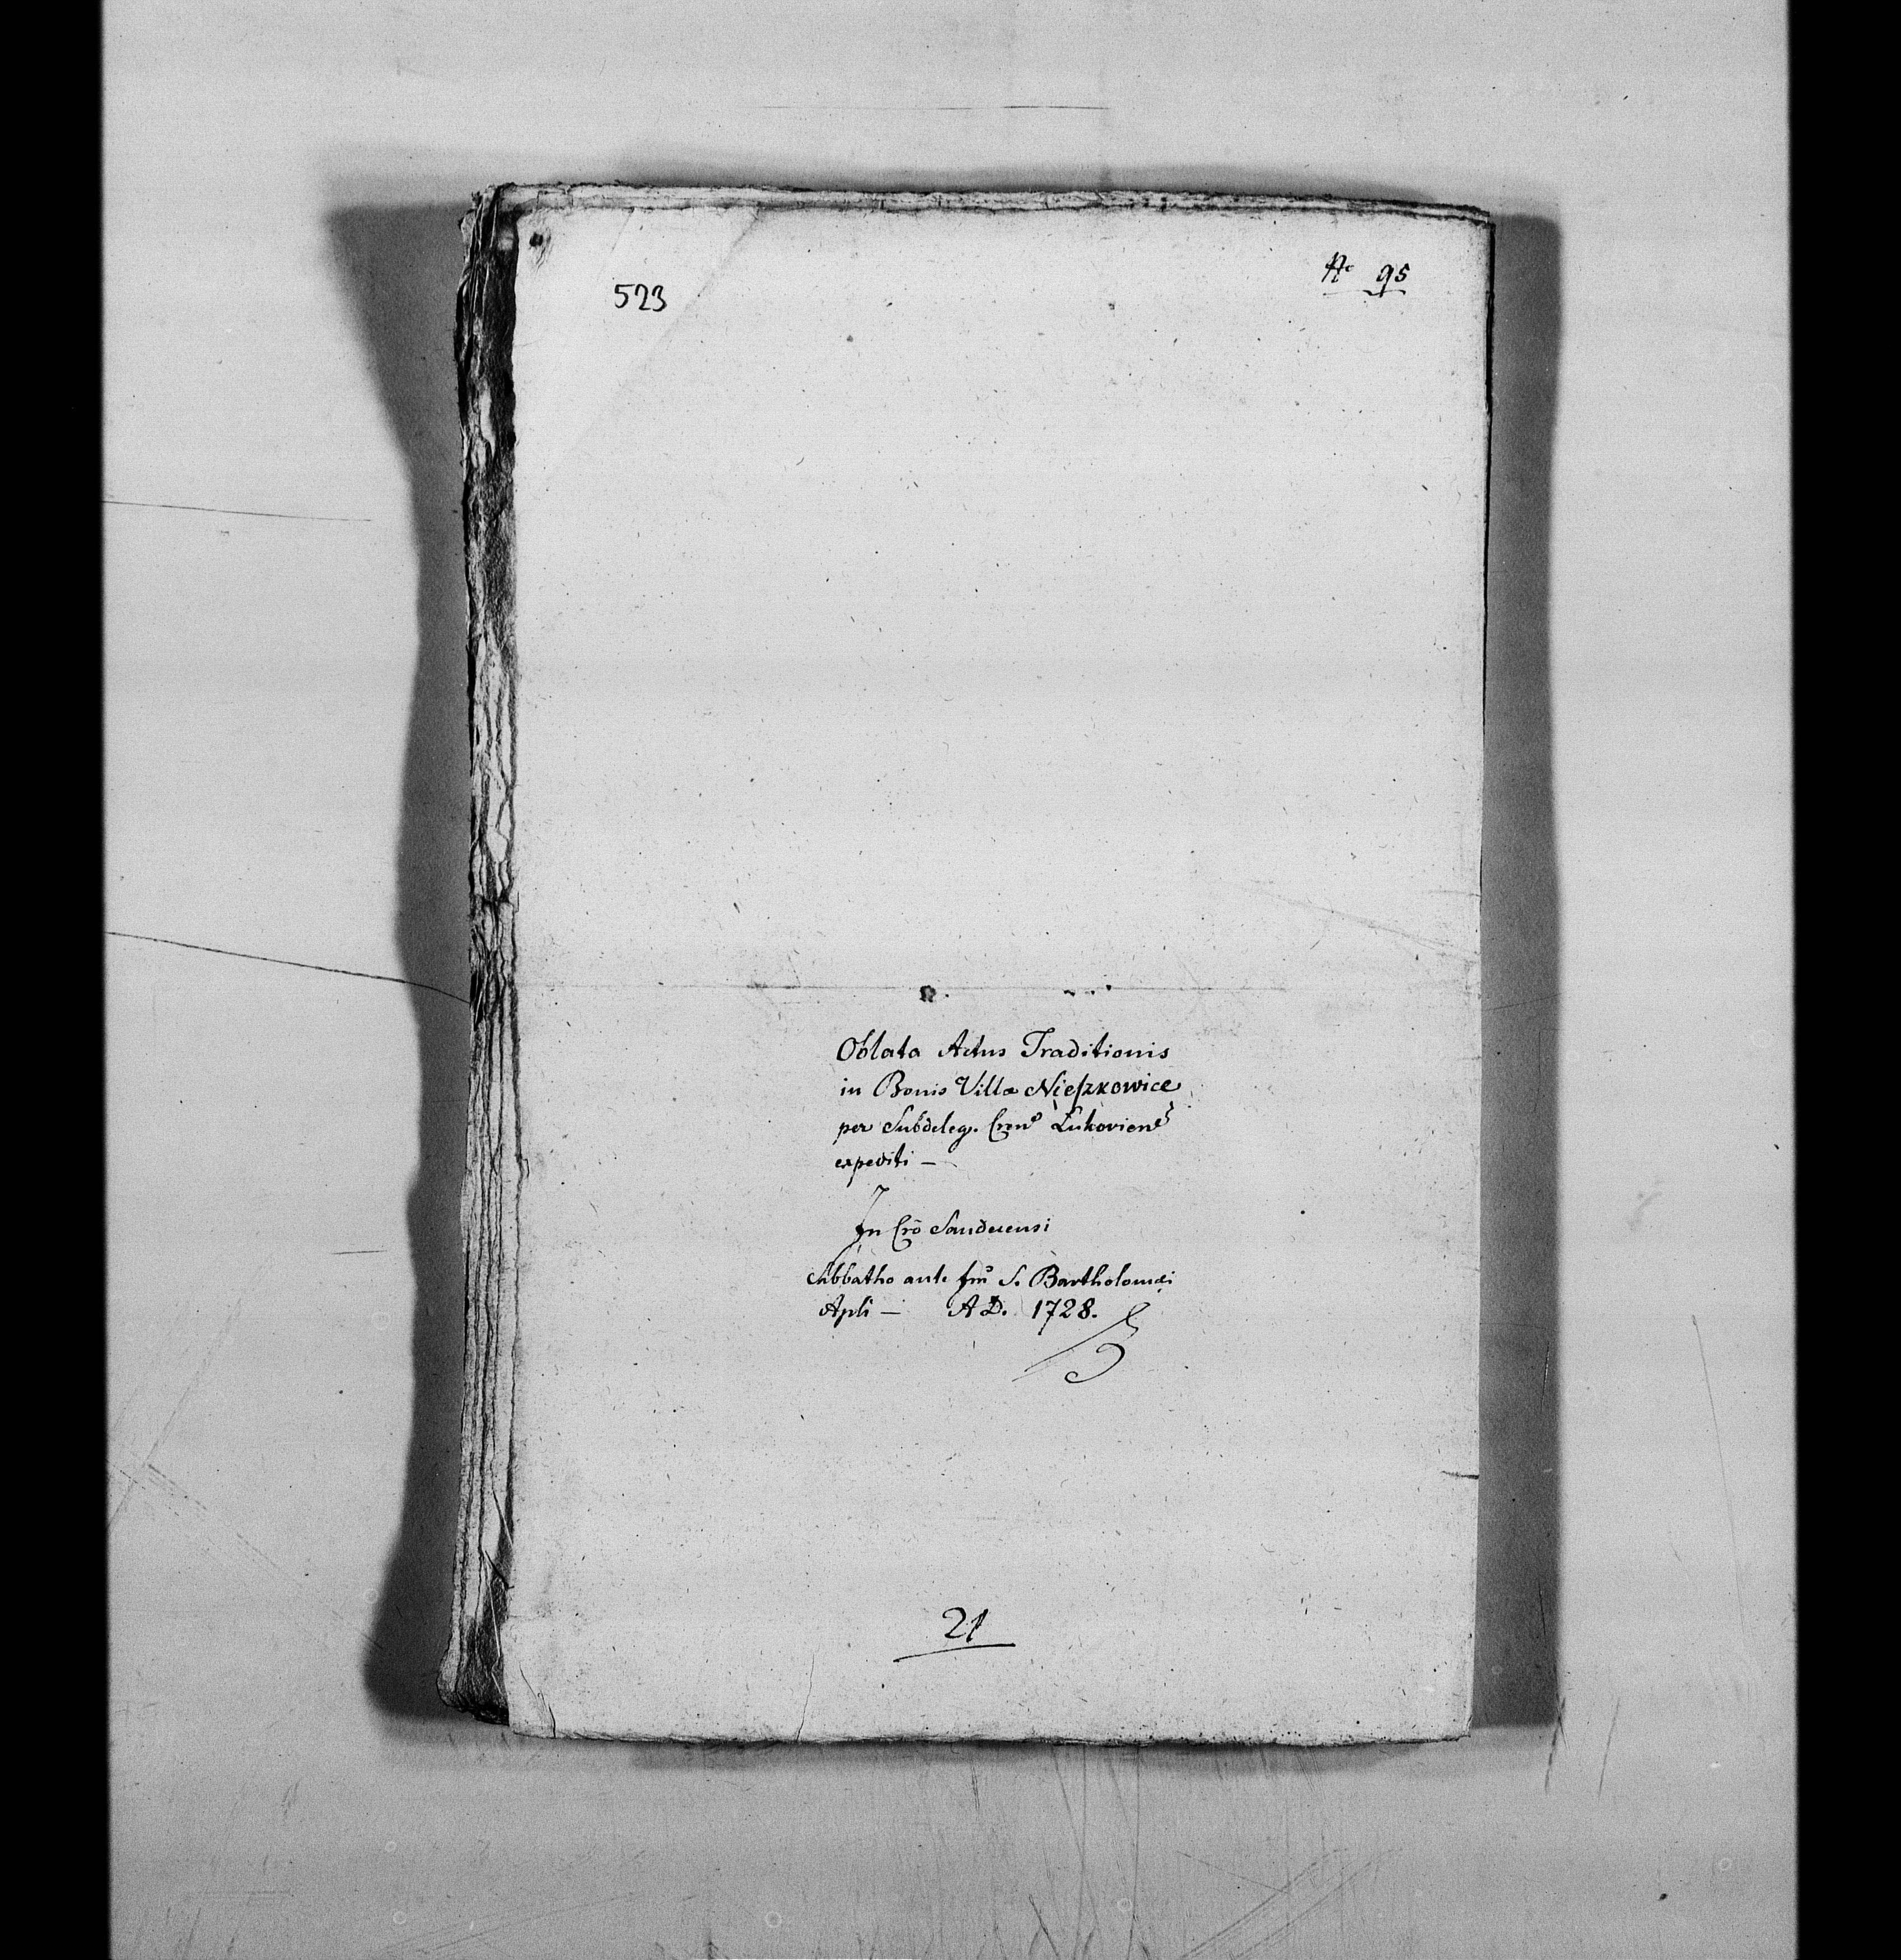 523
No 95
Oblata Actus Traditionis
in Bonis Villæ Nieſzkowice
per Subdeleg. Cren̄s Lukovien̄s
expediti —
In Crō Sandecensi
Sabbatho ante fm̄ S. Bartholomæi
Apli — A D. 1728.
21